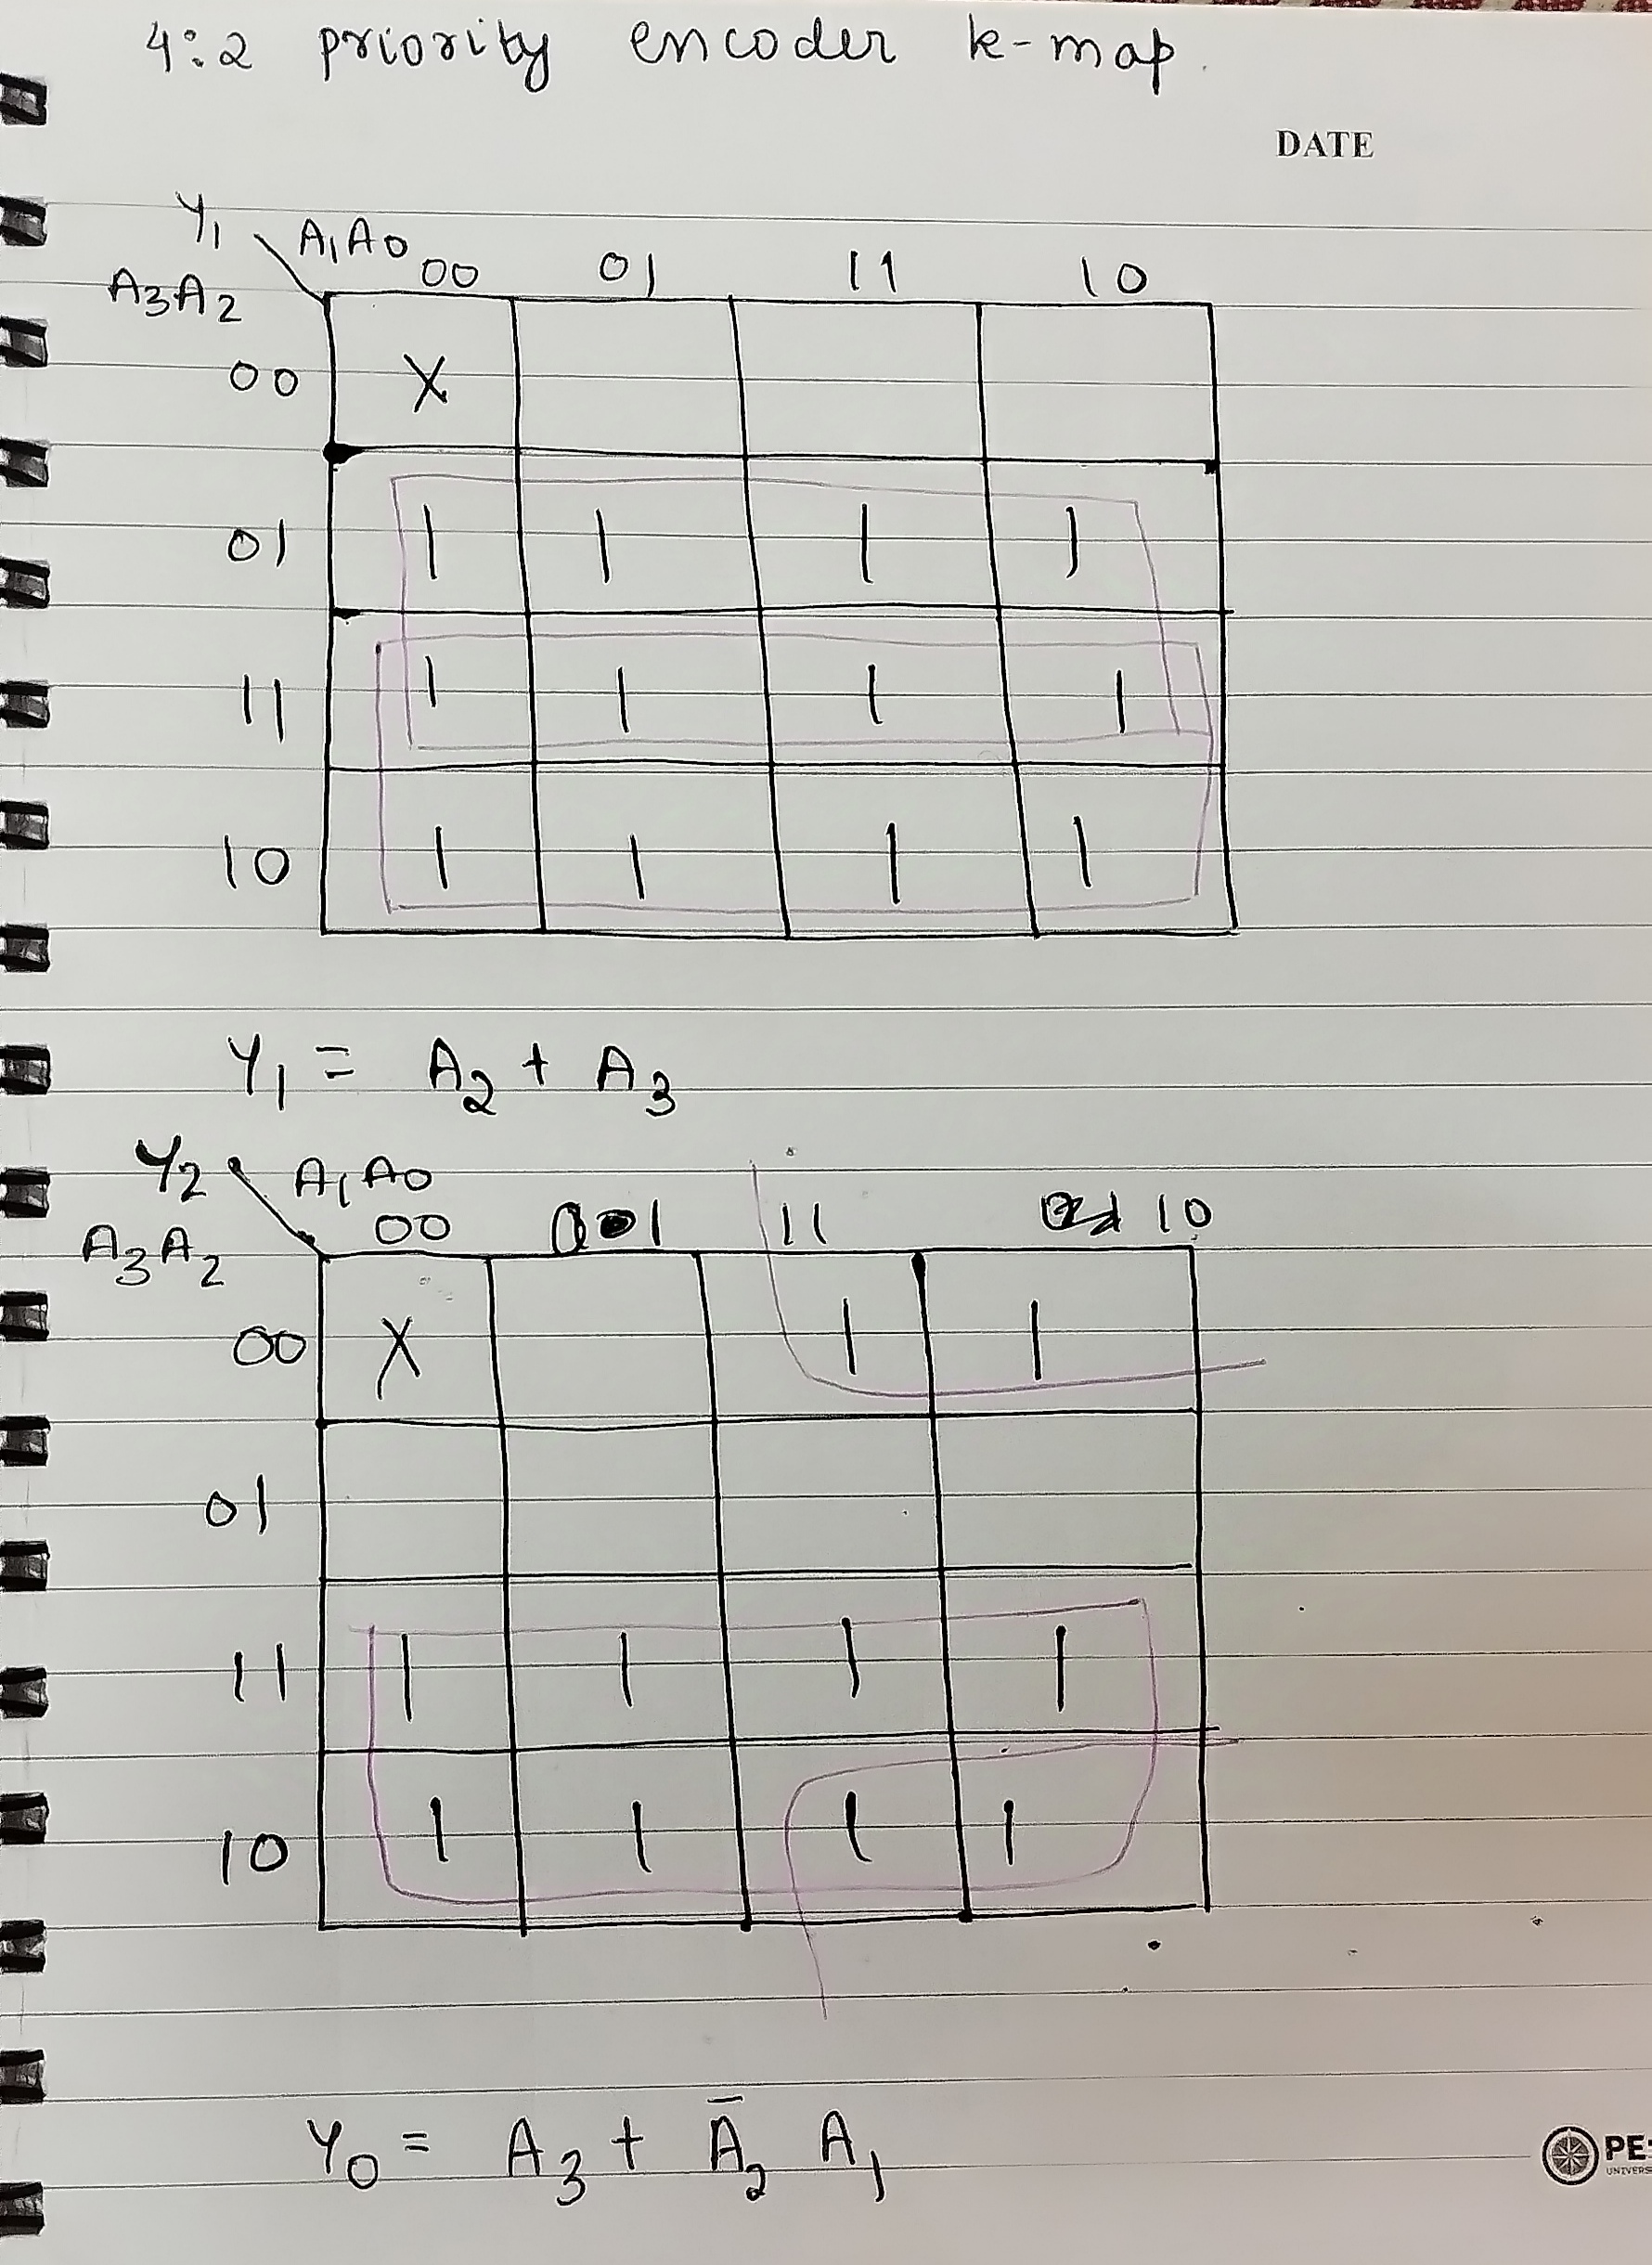 4:2 priority encoder k-map.
DATE
Y1 A1A0 00 01 11 10
A3A2
00 X
01 1 1 1 1
11 1 1 1 1
10 1 1 1 1
Y1 = A2 + A3
Y2 A1A0
00 01 11 10
A3A2
00 X 1 1
01
11 1 1 1 1
10 1 1 1 1
Y0 = A3 + A̅2 A1
PES